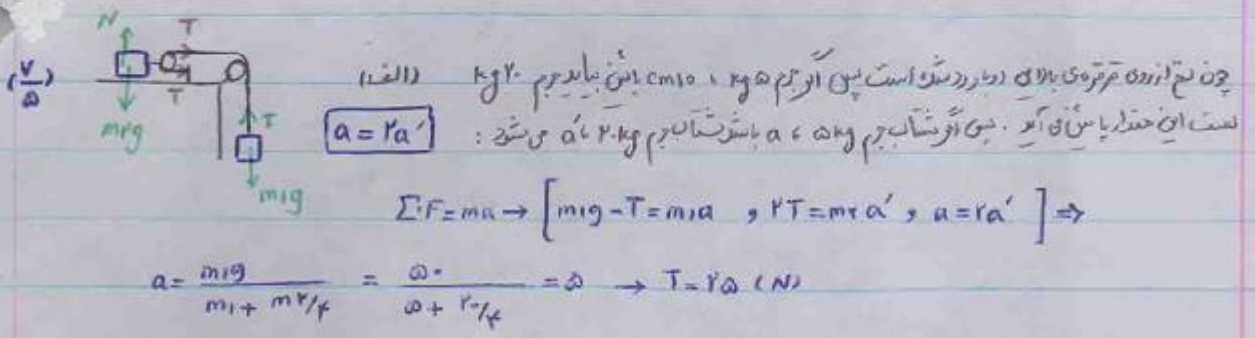 (۷/۵)
N T T m۲g T m۱g
الف) چون نخ از روی قرقره‌ی بالای دوبار رد شده است پس اگر جرم ۵ kg ، ۱۰ cm پائین بیاید جرم ۲۰ kg
این مقدار پائین می آید . پس اگر شتاب جرم ۵ kg ، a باشد شتاب جرم ۲۰ kg ، a′ می شود :
a = ۲a′
ΣF = ma → [m۱g - T = m۱a , ۲T = m۲a′ , a = ۲a′ ] ⇒
a = m۱g / (m۱ + m۲/۴) = ۵۰ / (۵ + ۲۰/۴) = ۵ → T = ۲۵ (N)